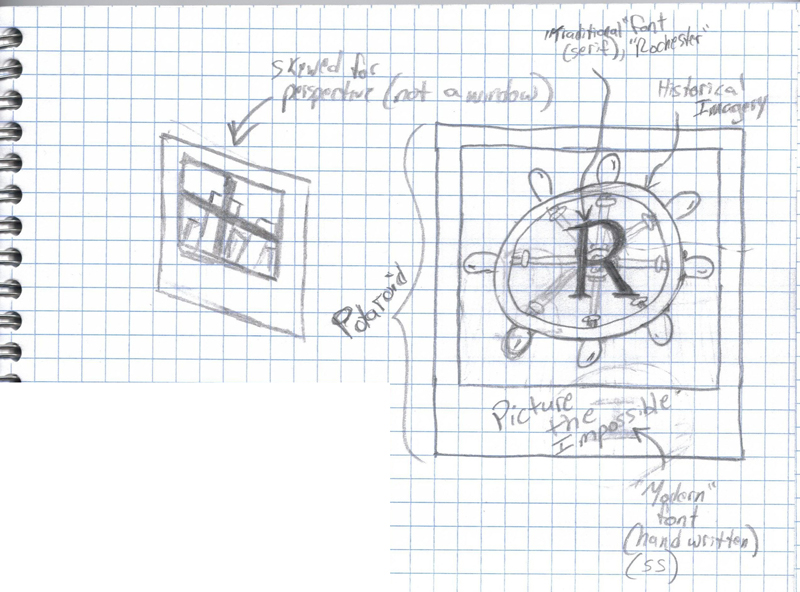 skewed for
perspective (not a window)
"Traditional" font
(serif), "Rochester"
Historical
Imagery
Polaroid
R
Picture
the
Impossible
"Modern"
font
(hand written)
(ss)